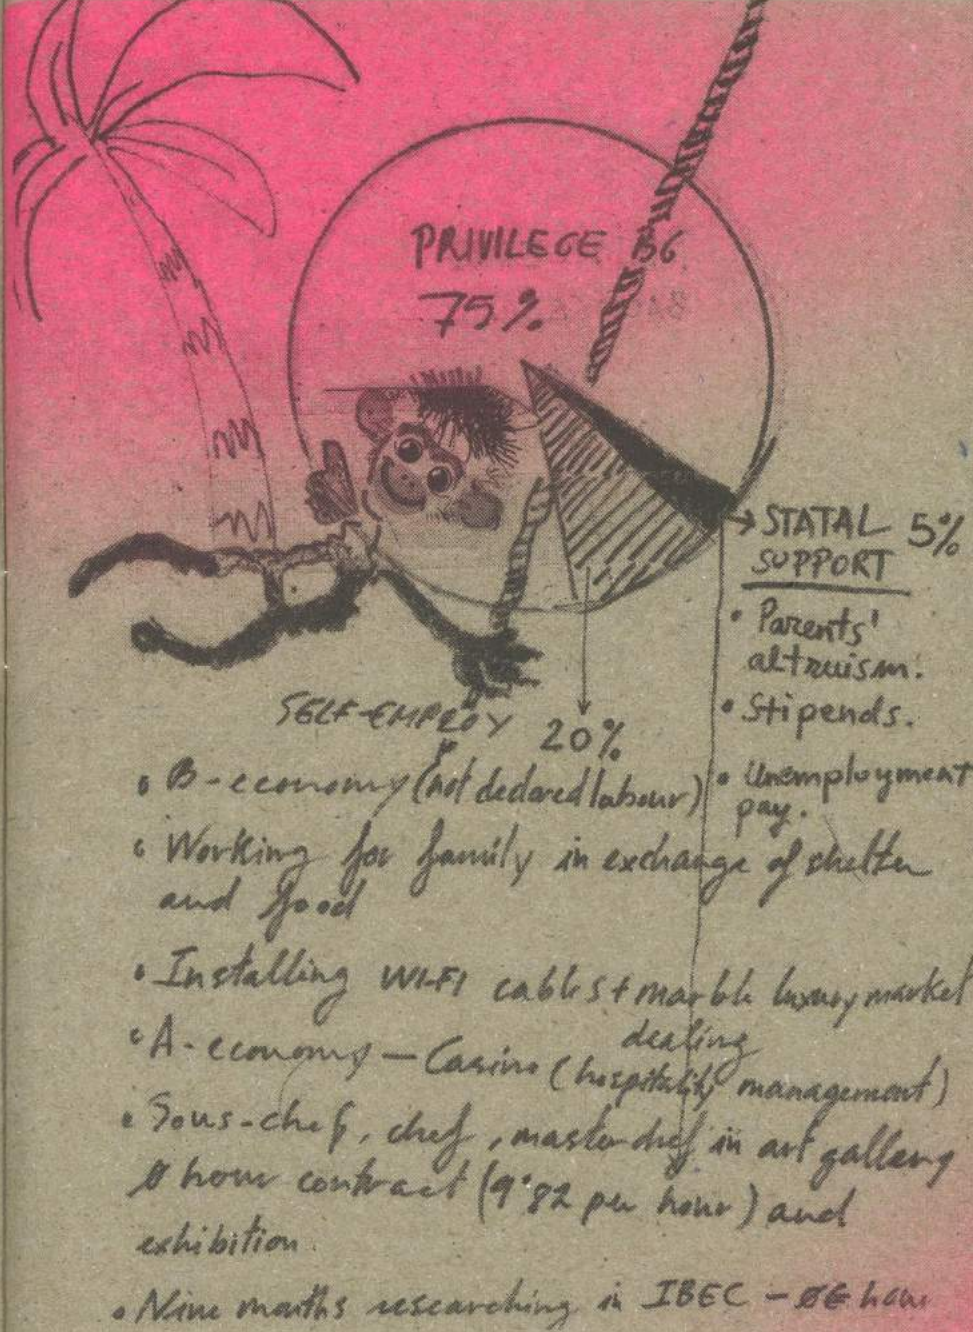 PRIVILEGE BG
75%
→ STATAL 5%
SUPPORT
• Parents'
altruism.
• Stipends.
• Unemployment
pay.
SELF-EMPLOY 20%
• B-economy (not declared labour)
• Working for family in exchange of shelter
and food
• Installing WI-FI cables + marble luxury market
dealing
• A-economy — Casino (hospitality management)
• Sous-chef, chef, masterchef in art gallery
0 hour contract (9'82 per hour) and
exhibition
• Nine months researching in IBEC - 0€ hour